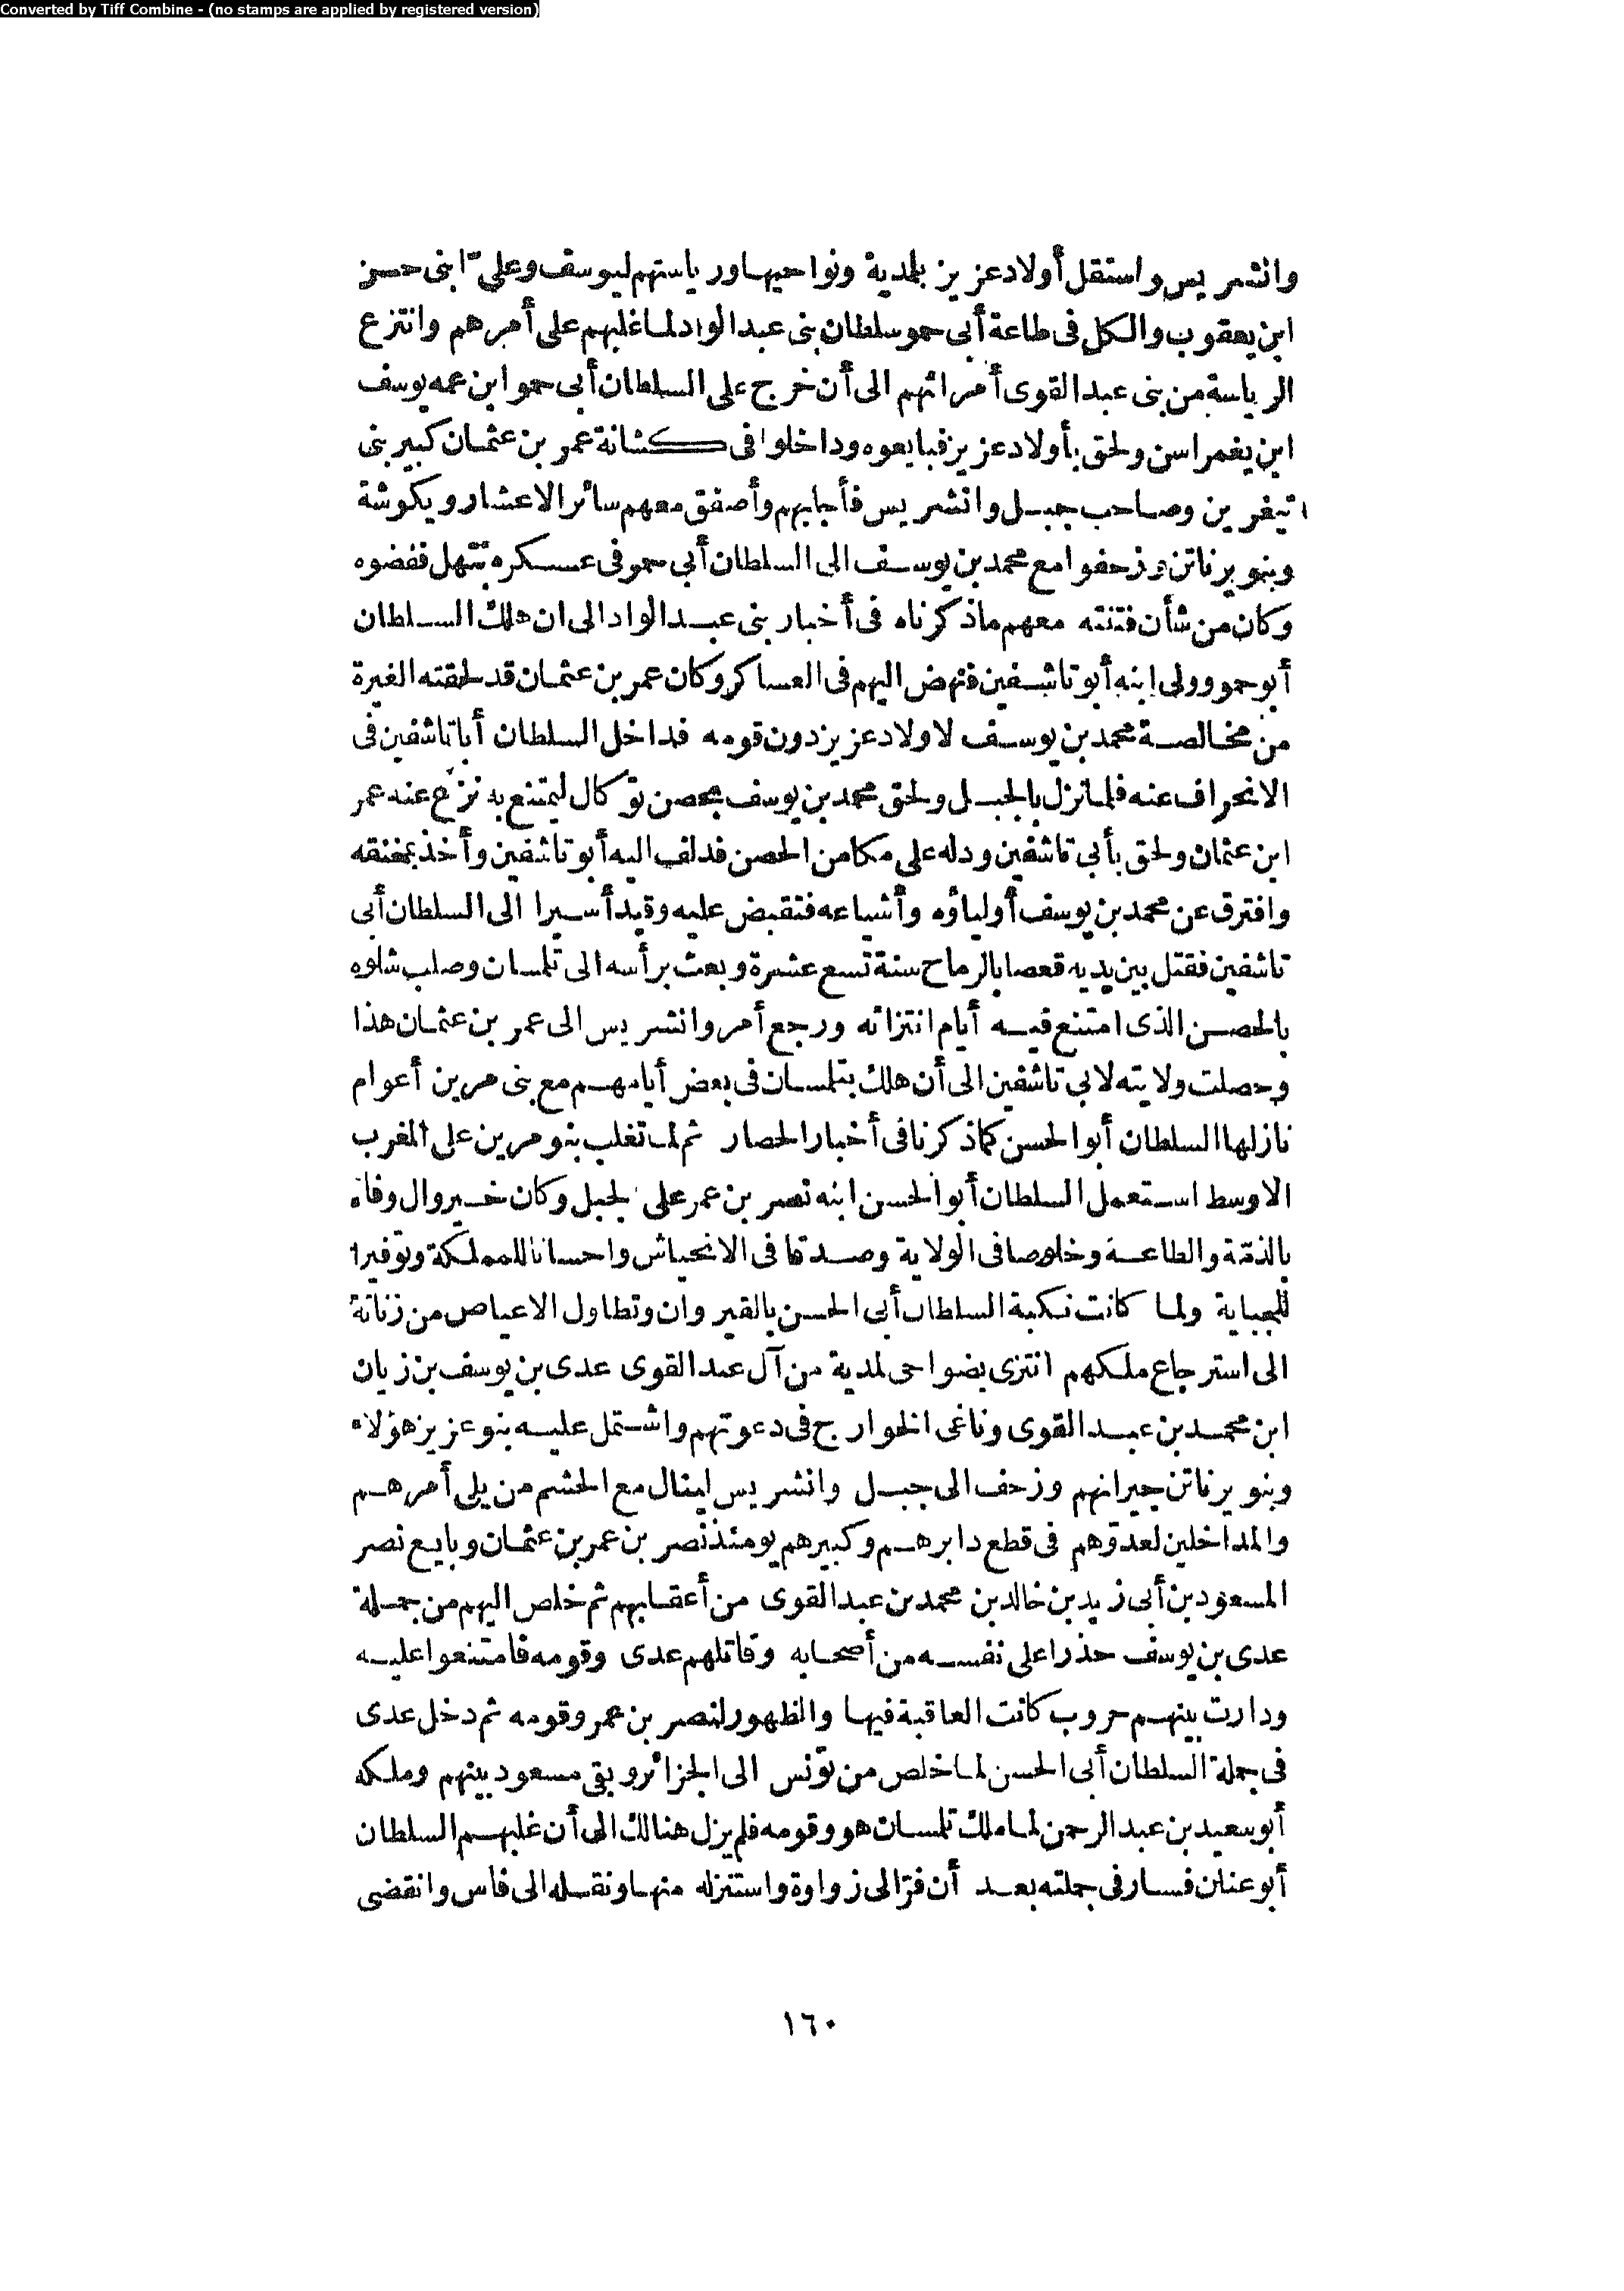 Converted by Tiff Combine - (no stamps are applied by registered version)
وانشريس واستقل أولاد عزيز بلمدية ونواحيها ورياستهم ليوسف وعلىّ ابنى حسن
ابن يعقوب والكل فى طاعة أبى حمو سلطان بنى عبد الواد لما غلبهم على أمرهم وانتزع
الرياسة من بنى عبد القوى أمرائهم الى أن خرج على السلطان أبى حمو ابن عمه يوسف
ابن يغمراسن ولحق بأولاد عزيز فبايعوه وداخلوا فى كشانة عمر بن عثمان كبير بنى
تيغرين وصاحب جبل وانشريس فأجابهم وأصفق معهم سائر الاعشار ويكوشة
وبنو يرناتن وزحفوا مع محمد بن يوسف الى السلطان أبى حمو فى عسكره بتهل ففضوه
وكان من شأن فتنته معهم ماذكرناه فى أخبار بنى عبد الواد الى ان هلك السلطان
أبو حمو وولى ابنه أبو تاشفين فنهض اليهم فى العساكر وكان عمر بن عثمان قد لحقته الغيرة
من مخالصة محمد بن يوسف لاولاد عزيز دون قومه فداخل السلطان أبا تاشفين فى
الانحراف عنه فلما نزل بالجبل ولحق محمد بن يوسف بحصن توكال ليمتنع به نزع عنه عمر
ابن عثمان ولحق بأبى تاشفين ودله على مكامن الحصن فدلف اليه أبو تاشفين وأخذ بمخنقه
وافترق عن محمد بن يوسف أولياؤه وأشياعه فتقبض عليه وقيد أسيرا الى السلطان أبى
تاشفين فقتل بين يديه قعصا بالرماح سنة تسع عشرة وبعث برأسه الى تلمسان وصلب شلوه
بالحصن الذى امتنع فيه أيام انتزائه ورجع أمر وانشريس الى عمر بن عثمان هذا
وحصلت ولايته لابى تاشفين الى أن هلك بتلمسان فى بعض أيامهم مع بنى مرين أعوام
نازلها السلطان أبو الحسن كماذكرنا فى أخبار الحصار ثم لما تغلب بنو مرين على المغرب
الاوسط استعمل السلطان أبو الحسن ابنه نصر بن عمر على لجبل وكان خير وال وفاء
بالذمّة والطاعة وخلوصا فى الولاية وصدقا فى الانحياش واحسانا للمملكة وتوفيرا
للجباية ولما كانت نكبة السلطان أبى الحسن بالقيروان وتطاول الاعياص من زناتة
الى استرجاع ملكهم انتزى بضواحى لمدية من آل عبد القوى عدى بن يوسف بن زيان
ابن محمد بن عبد القوى وناغى الخوارج فى دعوتهم واشتمل عليه بنو عزيز هؤلاء
وبنو يرناتن جيرانهم وزحف الى جبل وانشريس لينال مع الحشم من يلى أمرهم
والمداخلين لعدوّهم فى قطع دابرهم وكبيرهم يومئذ نصر بن عمر بن عثمان وبايع نصر
المسعود بن أبى زيد بن خالد بن محمد بن عبد القوى من أعقابهم ثم خلص اليهم من جملة
عدى بن يوسف حذرا على نفسه من أصحابه وقاتلهم عدى وقومه فامتنعوا عليه
ودارت بينهم حروب كانت العاقبة فيها والظهور لنصر بن عمر وقومه ثم دخل عدى
فى جملة السلطان أبى الحسن لما خلص من تونس الى الجزائر وبقى مسعود بينهم وملكه
أبو سعيد بن عبد الرحمن لما ملك تلمسان هو وقومه فلم يزل هنالك الى أن غلبهم السلطان
أبو عنان فسار فى جملته بعد أن فرّ الى زواوة واستنزله منها ونقله الى فاس وانقضى
١٦٠